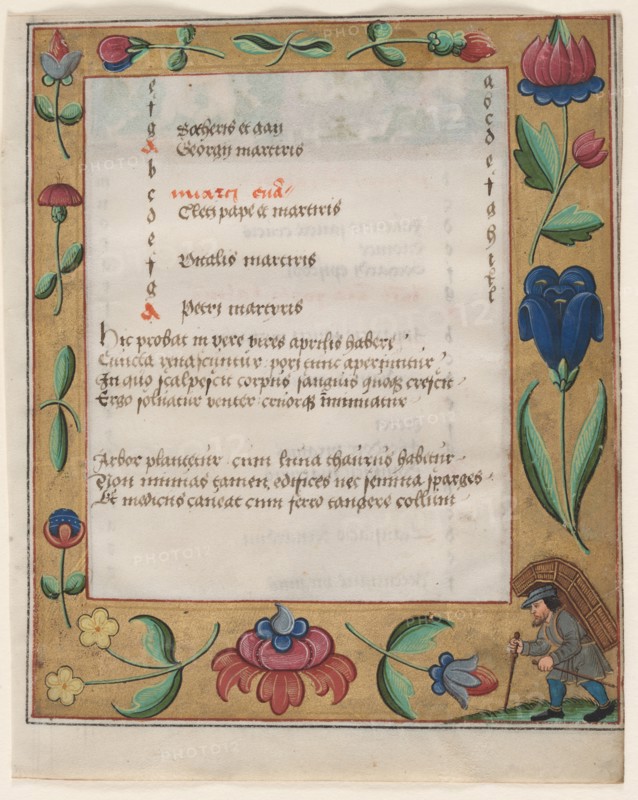 e a
f b
g Sotheris et Gaii c
A Georgij martiris d
b e
c marci eua f
d Cleti pape et martiris g
e h
f Vitalis martiris i
g k
A Petri martiris
Hic probat in vere vires aprilis habere
Cuncta renascuntur pori tunc aperiuntur
In quo scalpescit corpus sanguis quoq3 crescit
Ergo soluatur venter cruorq3 minuatur
Arbor plantetur cum luna thaurus habetur
Non minuas tamen edifices nec semina sparges
Et medicus caueat cum ferro tangere collum
PHOTO12